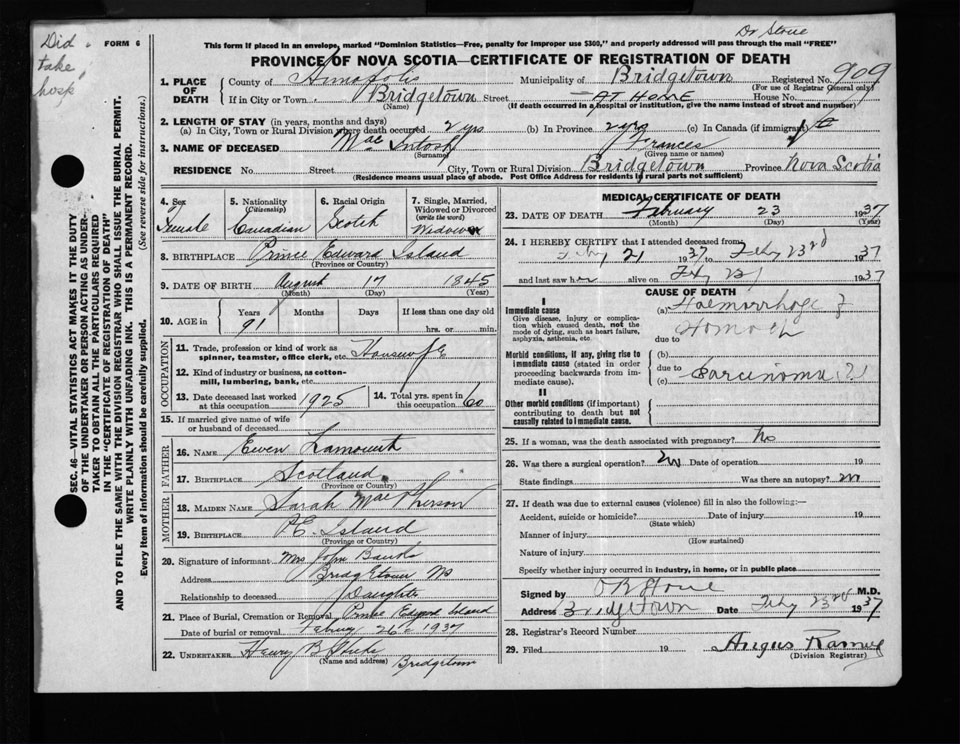 Dr Stone
Did
take
hosp
FORM 6
This form if placed in an envelope, marked "Dominion Statistics—Free, penalty for improper use $300," and properly addressed will pass through the mail "FREE"
PROVINCE OF NOVA SCOTIA—CERTIFICATE OF REGISTRATION OF DEATH
1. PLACE OF DEATH County of Annapolis Municipality of Bridgetown Registered No. 909
(For use of Registrar General only)
If in City or Town Bridgetown Street AT HOME House No.
(Name) (If death occurred in a hospital or institution, give the name instead of street and number)
2. LENGTH OF STAY (in years, months and days)
(a) In City, Town or Rural Division where death occurred 2 yrs (b) In Province 2 yrs (c) In Canada (if immigrant)
3. NAME OF DECEASED Mac Intosh Frances
(Surname) (Given name or names)
RESIDENCE No. Street City, Town or Rural Division Bridgetown Province Nova Scotia
(Residence means usual place of abode. Post Office Address for residents in rural parts not sufficient)
SEC. 46—VITAL STATISTICS ACT MAKES IT THE DUTY
OF THE UNDERTAKER OR PERSON ACTING AS UNDER-
TAKER TO OBTAIN ALL THE PARTICULARS REQUIRED
IN THE "CERTIFICATE OF REGISTRATION OF DEATH"
AND TO FILE THE SAME WITH THE DIVISION REGISTRAR WHO SHALL ISSUE THE BURIAL PERMIT.
WRITE PLAINLY WITH UNFADING INK. THIS IS A PERMANENT RECORD.
Every item of information should be carefully supplied. (See reverse side for instructions.)
4. Sex 5. Nationality 6. Racial Origin 7. Single, Married,
(Citizenship) Widowed or Divorced
(write the word)
Female Canadian Scotch Widow
8. BIRTHPLACE Prince Edward Island
(Province or Country)
9. DATE OF BIRTH August 17 1845
(Month) (Day) (Year)
10. AGE in Years Months Days If less than one day old
91 hrs. or min.
OCCUPATION
11. Trade, profession or kind of work as
spinner, teamster, office clerk, etc. Housewife
12. Kind of industry or business, as cotton-
mill, lumbering, bank, etc.
13. Date deceased last worked at this occupation 1925 14. Total yrs. spent in this occupation 60
15. If married give name of wife
or husband of deceased
FATHER
16. NAME Ewen
17. BIRTHPLACE Scotland
(Province or Country)
MOTHER
18. MAIDEN NAME Sarah Mac Pherson
19. BIRTHPLACE P.E. Island
(Province or Country)
20. Signature of informant Mrs John
Address Bridgetown NS
Relationship to deceased Daughter
21. Place of Burial, Cremation or Removal Prince Edward Island
Date of burial or removal 26 1937
22. UNDERTAKER Henry B Hicks
(Name and address) Bridgetown
MEDICAL CERTIFICATE OF DEATH
23. DATE OF DEATH February 23 1937
(Month) (Day) (Year)
24. I HEREBY CERTIFY that I attended deceased from
Feby 21 1937 to Feby 23rd 1937
and last saw her alive on 1937
CAUSE OF DEATH
I
Immediate cause
Give disease, injury or complica-
tion which caused death, not the
mode of dying, such as heart failure,
asphyxia, asthenia, etc.
(a) Haemorrhage of
Stomach
due to
Morbid conditions, if any, giving rise to
immediate cause (stated in order
proceeding backwards from im-
mediate cause).
(b)
due to
(c) Carcinoma
II
Other morbid conditions (if important)
contributing to death but not
causally related to immediate cause.
25. If a woman, was the death associated with pregnancy? No
26. Was there a surgical operation? no Date of operation 19
State findings Was there an autopsy? no
27. If death was due to external causes (violence) fill in also the following:—
Accident, suicide or homicide? Date of injury 19
(State which)
Manner of injury
(How sustained)
Nature of injury
Specify whether injury occurred in industry, in home, or in public place
Signed by Stone M.D.
Address Bridgetown Date Feby 23rd 1937
28. Registrar's Record Number
29. Filed 19 Angus
(Division Registrar)